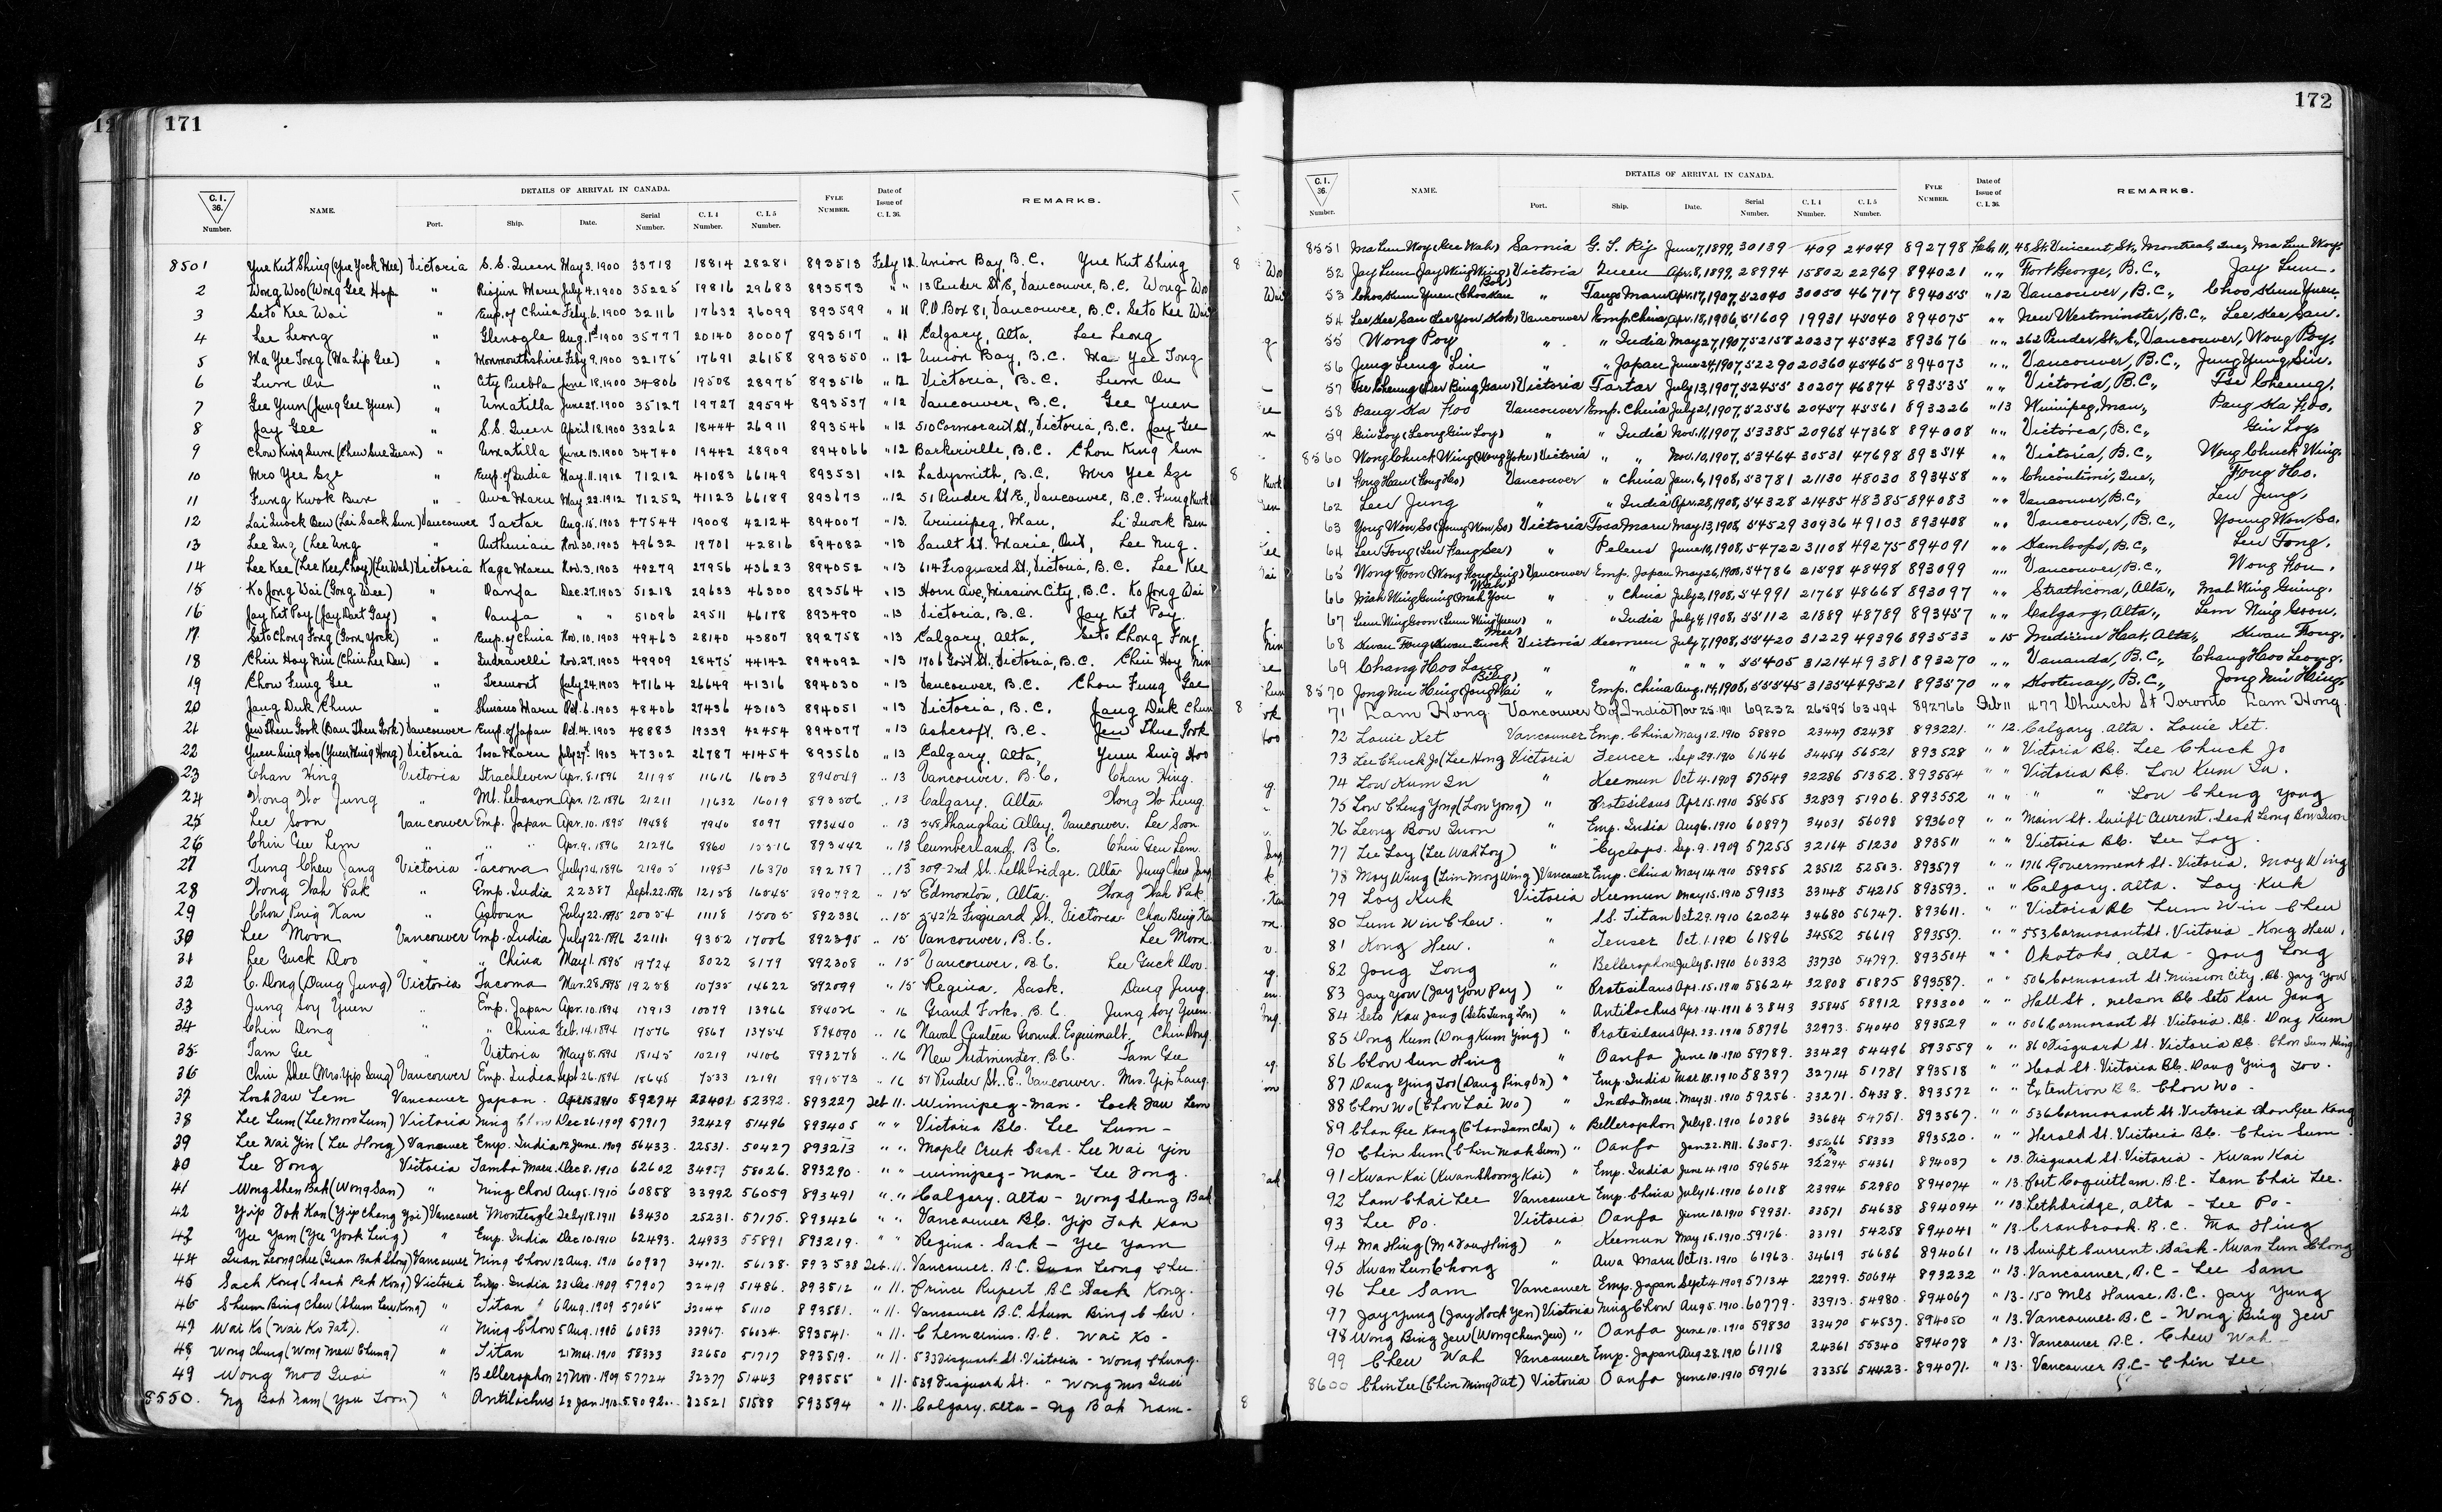 171
C. I. 36. Number.
NAME.
DETAILS OF ARRIVAL IN CANADA.
Port. Ship. Date. Serial Number. C. I. 4 Number. C. I. 5 Number.
FYLE NUMBER.
Date of Issue of C. I. 36.
REMARKS.
8501 Yue Kut Shing (Yue Yock Wee) Victoria S.S. Queen May 3. 1900 33718 18814 28281 893513 Feby 12. Union Bay, B.C. Yue Kut Shing
2 Wong Woo (Wong Gee Hop " Riojun Maru July 4. 1900 35225 19816 29683 893573 " " 13 Pender St E, Vancouver, B.C. Wong Woo
3 Seto Kee Wai " Emp. of China Feby. 6. 1900 32116 17632 26099 893599 " 11 P.O Box 81, Vancouver, B.C. Seto Kee Wai
4 Lee Leong " Glenogle Aug. 1st 1900 35777 20140 30007 893517 " 11 Calgary, Alta, Lee Leong
5 Ma Yee Tong (Ma Lip Gee) " Monmouthshire Feby 9. 1900 32175 17691 26158 893550 " 12 Union Bay, B.C. Ma Yee Tong
6 Lum On " City Puebla June 18. 1900 34806 19508 28975 893516 " 12 Victoria, B.C. Lum On
7 Gee Yuen (Jung Gee Yuen) " Umatilla June 27. 1900 35127 19727 29594 893537 " 12 Vancouver, B.C. Gee Yuen
8 Jay Gee " S.S. Queen April 18. 1900 33262 18444 26911 893546 " 12 510 Cormorant St., Victoria, B.C. Jay Gee
9 Chow King Sum (Chew Sue Quan) " Umatilla June 13. 1900 34740 19442 28909 894066 " 12 Barkerville, B.C. Chow King Sum
10 Mrs Yee Sze " Emp. of India May. 11. 1912 71212 41083 66149 893531 " 12 Ladysmith, B.C. Mrs Yee Sze
11 Fung Kwok Bun " Awa Maru May 22. 1912 71252 41123 66189 893673 " 12 51 Pender St E, Vancouver, B.C. Fung Kwok
12 Lai Quock Ben (Lai Sack Sun) Vancouver Tartar Aug. 15. 1903 47544 19008 42124 894007 " 13. Winnipeg, Man, Li Quock Ben
13 Lee Ing (Lee Ung " Authenian Nov. 30. 1903 49632 19701 42816 894082 " 13 Sault St. Marie, Ont, Lee Nug.
14 Lee Kee (Lee Kee Choy) (Lee Wah) Victoria Kaga Maru Nov. 3. 1903 49279 27956 43623 894052 " 13 614 Fisguard St., Victoria, B.C. Lee Kee
15 Ko Jong Wai (Gong Wee) " Oanfa Dec. 27. 1903 51218 29633 46300 893564 " 13 Horn Ave, Mission City, B.C. Ko Jong Wai
16 Jay Ket Poy (Jay Dart Gay) " Oanfa " " 51096 29511 46178 893490 " 13 Victoria, B.C. Jay Ket Poy.
17. Seto Chong Fong (Goon York) " Emp. of China Nov. 10. 1903 49463 28140 43807 892758 " 13 Calgary, Alta, Seto Chong Fong
18 Chin Hoy Nin (Chin Lee Den) " Indravelli Nov. 27. 1903 49909 28475 44142 894092 " 13 1706 Gov't St., Victoria, B.C. Chin Hoy Nin
19 Chow Fung Gee " Tremont July 24. 1903 47164 26649 41316 894030 " 13 Vancouver, B.C. Chow Fung Gee
20 Jang Duk Chun " Shinano Maru Oct. 6. 1903 48406 27436 43103 894051 " 13 Victoria, B.C. Jang Duk Chun
21 Jew Shen Gook (Bau Shen Gook) Vancouver Emp. of Japan Oct. 14. 1903 48883 19339 42454 894077 " 13 Ashcroft, B.C. Jew Shue Gook
22 Yuen Sing Hoo (Yuen Wing Hong) Victoria Tosa Maru July 29th. 1903 47302 26787 41454 893560 " 13 Calgary, Alta, Yuen Sing Hoo
23 Chan Hing Victoria Strathleven Apr. 8. 1896 21195 11616 16003 894049 " 13 Vancouver, B.C. Chan Hing.
24 Wong Wo Jung " Mt. Lebanon Apr. 12. 1896 21211 11632 16019 893506 " 13 Calgary, Alta. Wong Wo Lung.
25 Lee Soon Vancouver Emp. Japan Apr. 10. 1895 19488 7940 8097 893440 " 13 545 Shanghai Alley, Vancouver. Lee Soon.
26 Chin Gee Lem " " " Apr. 9. 1896 21296 8860 893442 " 13 Cumberland, B.C. Chin Gee Lem.
27 Jung Chew Jang Victoria Tacoma July 24. 1896 21905 11983 16370 892787 " 15 309-2nd St. Lethbridge, Alta. Jung Chew Jang
28 Wong Wah Pak " Emp. India 22387 Sept. 22. 1896 12158 16545 890792 " 15 Edmonton, Alta. Wong Wah Pak
29 Chow Ping Kan " July 22. 1895 20054 11118 15005 892336 " 15 542½ Fisguard St., Victoria. Chow Bing Kan
30 Lee Moon Vancouver Emp. India July 22. 1896 22111. 9352 17006 892395 " 15 Vancouver, B.C. Lee Moon.
31 Lee Guck Doo " " China May 1. 1895 19724 8022 8179 892308 " 15 Vancouver, B.C. Lee Guck Doo.
32 C. Dong (Dang Jung) Victoria Tacoma Mar. 28. 1895 19258 10735 14622 892099 " 15 Regina, Sask. Dang Jung.
33 Jung Soy Yuen " Emp. Japan Apr. 10. 1894 17913 10079 13966 894026 " 16 Grand Forks, B.C. Jung Soy Yuen.
34 Chin Dong " " China Feb. 14. 1894 17576 9867 13754 894090 " 16 Naval Canteen Ground, Esquimalt. Chin Dong.
35 Tam Gee " Victoria May 5. 1894 18145 10219 14106 893278 " 16 New Westminster, B.C. Tam Gee
36 Chin Shee (Mrs. Yip Sang) Vancouver Emp. India Sept. 26. 1894 18648 7533 12191 891573 " 16 51 Pender St. E. Vancouver. Mrs. Yip Sang.
37 Lock Jaw Lem Vancouver Japan. Apr. 15. 1910 59274 23401. 52392. 893227 Feb 11. Winnipeg - Man - Lock Jaw Lem
38 Lee Lum (Lee Mon Lum) Victoria Ning Chow Dec 26. 1909 57917 32429 51496 893405 " " Victoria B.C. Lee Lum -
39 Lee Wai Yin (Lee Hong) Vancouver Emp. India 12 June. 1909 56433. 22531. 50427 893213 " " Maple Creek Sask. - Lee Wai Yin
40 Lee Tong Victoria Tamba Maru. Dec 8. 1910 62602 34959 58026. 893290. " " Winnipeg - Man - Lee Tong.
41 Wong Shen Bak (Wong San) " Ning Chow Aug 5. 1910 60858 33992 56059 893491 " " Calgary. Alta - Wong Sheng Bak
42 Yip Tak Kan (Yip Chang Yoi) Vancouver Monteagle July 18. 1911 63430 25231. 57175. 893426 " " Vancouver B.C. Yip Tak Kan
43 Yee Yam (Yee York Ling) " Emp. India Dec 10. 1910 62493. 24933 55891 893219. " " Regina. Sask - Yee Yam
44 Quan Leong Chee (Quan Bak Shong) Vancouver Ning Chow 12 Aug. 1910 60937 34071. 56138. 893538 Feb. 11. Vancouver. B.C. Quan Leong Chee.
45 Sack Kong (Sack Pak Kong) Victoria Emp. India 23 Dec. 1909 57907 32419 51486. 893512 " 11. Prince Rupert B.C. Sack Kong.
46 Shum Bing Chew (Shum Lew Kong) " Titan 6 Aug. 1909 57065 32044 51110 893581. " 11. Vancouver B.C. Shum Bing Chew.
47 Wai Ko (Wai Ko Fat). " Ning Chow 5 Aug. 1910 60833 33967. 56034. 893541. " 11. Chemainus. B.C. Wai Ko -
48 Wong Chung (Wong Mew Chung) " Titan 21 Mar. 1910 58333 32650 51717 893519. " 11. 533 Fisguard St. Victoria - Wong Chung.
49 Wong Moo Quai " Bellerophon 27 Nov. 1909 57724 32377 51443 893555 " 11. 539 Fisguard St. " Wong Moo Quai
8550. Ng Bak Nam (You Toon) " Antilochus 22 Jan. 1910. 58092. 32521 51588 893594 " 11. Calgary. Alta - Ng Bak Nam -
172
C. I. 36. Number.
NAME.
DETAILS OF ARRIVAL IN CANADA.
Port. Ship. Date. Serial Number. C. I. 4 Number. C. I. 5 Number.
FYLE NUMBER.
Date of Issue of C. I. 36.
REMARKS.
8551 Ma Lun Woy (Gee Wah) Sarnia G. T. Ry June 7, 1899, 30139 409 24049 892798 Feb. 11, 45 St. Vincent St., Montreal, Que, Ma Lun Woy.
52 Jay Lum (Jay Wing Wing) Victoria Queen Apr. 8, 1899, 28994 15802 22969 894021 " " Fort George, B.C., Jay Lum.
53 Choo Kum Yuen (Choo Kan Bow) " Tango Maru Apr. 17, 1907, 52040 30050 46717 894055 " 12 Vancouver, B.C., Choo Kum Yuen.
54 Lee Kee San (Lee Yon Kok) Vancouver Emp. China, Apr. 18, 1906, 51609 19931 45040 894075 " " New Westminster, B.C., Lee Kee San.
55 Wong Poy " " India May 27, 1907, 52158 20237 45342 893676 " " 262 Pender St. E, Vancouver, Wong Poy.
56 Jung Leung Sin " " Japan June 24, 1907, 52290 20360 45465 894073 " " Vancouver, B.C., Jung Yung Sin.
57 Tse Cheung (Der Bing Gaw) Victoria Tartar July 13, 1907, 52455 30207 46874 893535 " " Victoria, B.C., Tse Cheung.
58 Pang Ka Foo Vancouver Emp. China July 21, 1907, 52556 20457 45561 893226 " 13 Winnipeg, Man, Pang Ka Foo.
59 Gin Loy (Leong Gin Loy) " " India Nov. 11, 1907, 53385 20968 47368 894008 " " Victoria, B.C., Gin Loy.
8560 Wong Chuck Wing (Wong Yoke) Victoria " " Nov. 10, 1907, 53464 30531 47698 893514 " " Victoria, B.C., Wong Chuck Wing.
61 Fong Hau (Fong Ho) Vancouver " China Jan. 6, 1908, 53781 21130 48030 893458 " " Chicoutimi, Que., Fong Ho.
62 Lew Jung " " India Apr. 28, 1908, 54328 21485 48385 894083 " " Vancouver, B.C., Lew Jung.
63 Yong Won So (Young Won So) Victoria Tosa Maru May 13, 1908, 54529 30936 49103 893408 " " Vancouver, B.C., Young Won So.
64 Lew Tong (Lew Hang See) " Peleus June 10, 1908, 54722 31108 49275 894091 " " Kamloops, B.C., Lew Tong.
65 Wong Foon (Wong Hong Suig) Vancouver Emp. Japan May 26, 1908, 54786 21598 48498 893099 " " Vancouver, B.C., Wong Hou.
66 Mah Wing Guing (Mah You Wah) " " China July 2, 1908, 54991 21768 48668 893097 " " Strathcona, Alta., Mah Wing Guing.
67 Lum Wing Goon (Lum Wing Yuen) " " India July 4, 1908, 55112 21889 48789 893457 " " Calgary, Alta., Lem Wing Goon.
68 Kwan Fong (Kwan Quock Mee) Victoria Keemun July 7, 1908, 55420 31229 49396 893533 " 15 Medicine Hat, Alta., Kwan Fong.
69 Chang Hoo Lang " " " " " 55405 31214 49381 893270 " " Vananda, B.C., Chang Hoo Leong.
8570 Jong Nin Hing (Jong Wai Bing) " Emp. China Aug. 14, 1908, 55545 31354 49521 893570 " " Kootenay, B.C., Jong Nin Hing.
71 Lam Hong Vancouver E of India Nov 25. 1911 69232 26595 63494 892766 Feb 11 477 Church St Toronto Lam Hong.
72 Louie Ket Vancouver Emp. China May 12. 1910 58890 23447 52438 893221. " 12. Calgary. Alta. Louie Ket.
73 Lee Chuck Jo (Lee Hong Victoria Teucer Sep 29. 1910 61646 34454 56521 893528 " " Victoria B.C. Lee Chuck Jo
74 Low Kum In " Keemun Oct 4. 1909 57549 32286 51352. 893554 " " Victoria B.C. Low Kum In.
75 Low Cheng Yong (Low Yong) " Protesilaus Apr. 15. 1910 58655 32839 51906. 893552 " " " " Low Cheng Yong
76 Leong Bow Quon " Emp. India Aug 6. 1910 60897 34031 56098 893609 " " Main St. Swift Current. Sask Leong Bow Quon
77 Lee Loy (Lee Wah Loy) " Cyclops. Sep. 9. 1909 57255 32164 51230 893511 " " Victoria B.C. Lee Loy.
78 Moy Wing (Lim Moy Wing) Vancouver Emp. China May 14. 1910 58955 23512 52503. 893579 " " 1716 Government St. Victoria. Moy Wing
79 Loy Kuk Victoria Keemun May 15. 1910 59133 33148 54215 893593. " " Calgary. Alta. Loy Kuk
80 Lum Win Chew. " S.S. Titan Oct 29. 1910 62024 34680 56747. 893611. " " Victoria B.C. Lum Win Chew
81 Kong Hew. " Teuser Oct. 1. 1910 61896 34552 56619 893557. " " 553 Cormorant St. Victoria - Kong Hew.
82 Jong Long " Bellerophon July 8. 1910 60332 33730 54797. 893504 " " Okotoks, Alta - Jong Long
83 Jay You (Jay You Poy) " Protesilaus Apr. 15. 1910 58624 32808 51875 893587. " " 506 Cormorant St. Mission City. B.C. Jay You
84 Seto Kau Jang (Seto Tung Lon) " Antilochus Apr. 14. 1911 63843 35845 58912 893300 " " Hall St. Nelson B.C Seto Kau Jang
85 Dong Kum (Dong Kum Ying) " Protesilaus Apr. 23. 1910 58796 32973. 54040 893529 " " 506 Cormorant St. Victoria. B.C. Dong Kum
86 Chon Sun Hing " Oanfa June 10. 1910 59789. 33429 54496 893559 " " 860 Fisguard St. Victoria B.C. Chon Sun Hing
87 Dang Ying Too (Dang Ping On) " Emp. India Mar 18. 1910 58397 32714 51781 893518 " " Head St. Victoria B.C. Dang Ying Too.
88 Chon Wo (Chon Lai Wo) " Inaba Maru. May 31. 1910 59256. 33271. 54338. 893572 " " Extention B.C. Chon Wo -
89 Chan Gee Kong (Chan Sam Choi) " Bellerophon July 8. 1910 60286 33684 54751. 893567. " " 536 Cormorant St. Victoria Chan Gee Kong
90 Chin Sum (Chin Mah Sum) " Oanfa Jan 22. 1911. 63057. 35266 58333 893520. " " Herald St. Victoria B.C. Chin Sum
91 Kwan Kai (Kwan Shoong Kai) " Emp. India June 4. 1910 59654 33294 54361 894037 " 13. Fisguard St. Victoria - Kwan Kai
92 Lam Chai Lee Vancouver Emp. China July 16. 1910 60118 23994 52980 894074 " 13. Port Coquitlam. B.C. - Lam Chai Lee.
93 Lee Po. Victoria Oanfa June 10. 1910 59931. 33571 54638 894094 " 13. Lethbridge, Alta - Lee Po -
94 Ma Hing (Ma You Hing) " Keemun May 15. 1910 59176. 33191 54258 894041 " 13. Cranbrook. B.C. Ma Hing
95 Kwan Lun Chong " Awa Maru Oct 13. 1910 61963. 34619 56686 894061 " 13 Swift Current. Sask - Kwan Lun Chong
96 Lee Sam Vancouver Emp. Japan Sept 4. 1909 57134 22799. 50694 893232 " 13. Vancouver, B.C - Lee Sam
97 Jay Yung (Jay Hock Yen) Victoria Ning Chow Aug 5. 1910 60779. 33913. 54980. 894067 " 13. 150 Mls House, B.C. Jay Yung
98 Wong Bing Jew (Wong Chun Jew) " Oanfa June 10. 1910 59830 33470 54537. 894050 " 13. Vancouver. B.C - Wong Bing Jew
99 Chew Wah Vancouver Emp. Japan Aug 28. 1910 61118 24361 55340 894078 " 13. Vancouver B.C. Chew Wah -
8600 Chin Lee (Chin Ming Fat) Victoria Oanfa June 10. 1910 59716 33356 54423. 894071. " 13. Vancouver B.C - Chin Lee